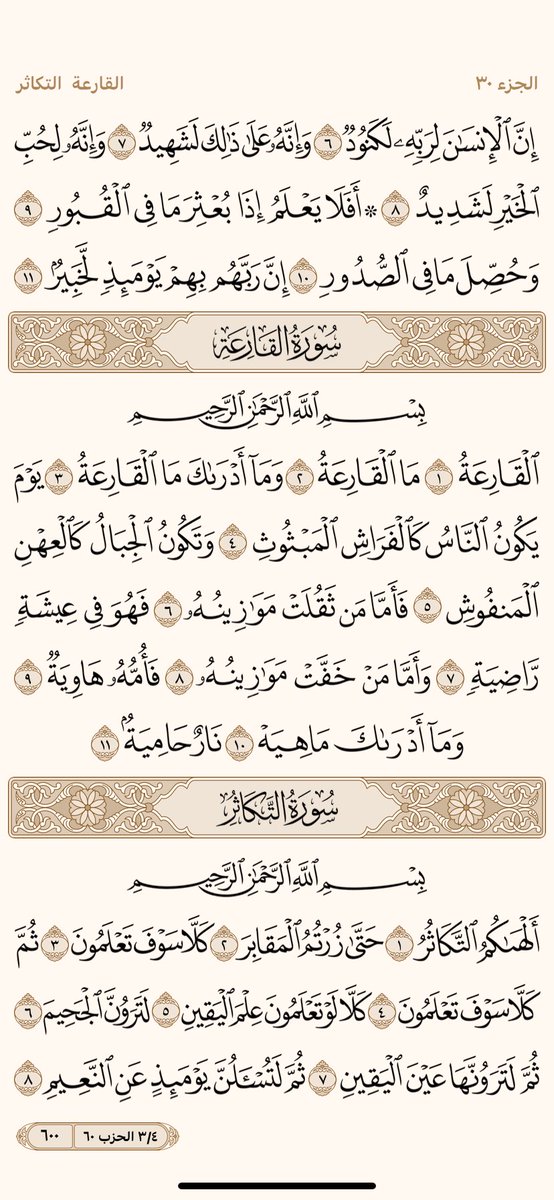 الجزء ٣٠
القارعة التكاثر
إِنَّ ٱلْإِنسَٰنَ لِرَبِّهِۦ لَكَنُودٌ ٦ وَإِنَّهُۥ عَلَىٰ ذَٰلِكَ لَشَهِيدٌ ٧ وَإِنَّهُۥ لِحُبِّ
ٱلْخَيْرِ لَشَدِيدٌ ٨ ۞ أَفَلَا يَعْلَمُ إِذَا بُعْثِرَ مَا فِى ٱلْقُبُورِ ٩
وَحُصِّلَ مَا فِى ٱلصُّدُورِ ١٠ إِنَّ رَبَّهُم بِهِمْ يَوْمَئِذٍ لَّخَبِيرٌۢ ١١
سُورَةُ القَارِعَةِ
بِسْمِ ٱللَّهِ ٱلرَّحْمَٰنِ ٱلرَّحِيمِ
ٱلْقَارِعَةُ ١ مَا ٱلْقَارِعَةُ ٢ وَمَآ أَدْرَىٰكَ مَا ٱلْقَارِعَةُ ٣ يَوْمَ
يَكُونُ ٱلنَّاسُ كَٱلْفَرَاشِ ٱلْمَبْثُوثِ ٤ وَتَكُونُ ٱلْجِبَالُ كَٱلْعِهْنِ
ٱلْمَنفُوشِ ٥ فَأَمَّا مَن ثَقُلَتْ مَوَٰزِينُهُۥ ٦ فَهُوَ فِى عِيشَةٍ
رَّاضِيَةٍ ٧ وَأَمَّا مَنْ خَفَّتْ مَوَٰزِينُهُۥ ٨ فَأُمُّهُۥ هَاوِيَةٌ ٩
وَمَآ أَدْرَىٰكَ مَا هِيَهْ ١٠ نَارٌ حَامِيَةٌۢ ١١
سُورَةُ التَّكَاثُرِ
بِسْمِ ٱللَّهِ ٱلرَّحْمَٰنِ ٱلرَّحِيمِ
أَلْهَىٰكُمُ ٱلتَّكَاثُرُ ١ حَتَّىٰ زُرْتُمُ ٱلْمَقَابِرَ ٢ كَلَّا سَوْفَ تَعْلَمُونَ ٣ ثُمَّ
كَلَّا سَوْفَ تَعْلَمُونَ ٤ كَلَّا لَوْ تَعْلَمُونَ عِلْمَ ٱلْيَقِينِ ٥ لَتَرَوُنَّ ٱلْجَحِيمَ ٦
ثُمَّ لَتَرَوُنَّهَا عَيْنَ ٱلْيَقِينِ ٧ ثُمَّ لَتُسْـَٔلُنَّ يَوْمَئِذٍ عَنِ ٱلنَّعِيمِ ٨
٣/٤ الحزب ٦٠
٦٠٠